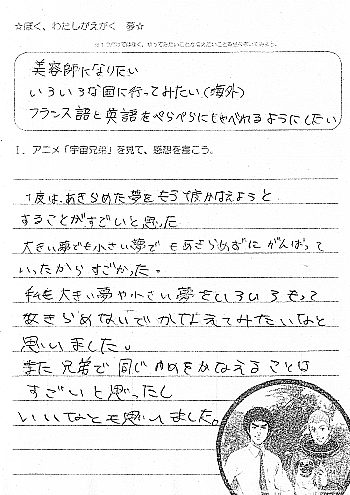 ☆ぼく、わたしがえがく 夢☆
美容師になりたい
いろいろな国に行ってみたい(海外)
フランス語と英語をぺらぺらにしゃべれるようにしたい
1. アニメ「宇宙兄弟」を見て、感想を書こう。
1度は、あきらめた夢をもう1度かなえようと
することがすごいと思った
大きい夢でも小さい夢でもあきらめずにがんばって
いったからすごかった。
私も大きい夢や小さい夢をいろいろもって
あきらめないでかなえてみたいなと
思いました。
また兄弟で同じゆめをかなえることは
すごいと思ったし
いいなとも思いました。